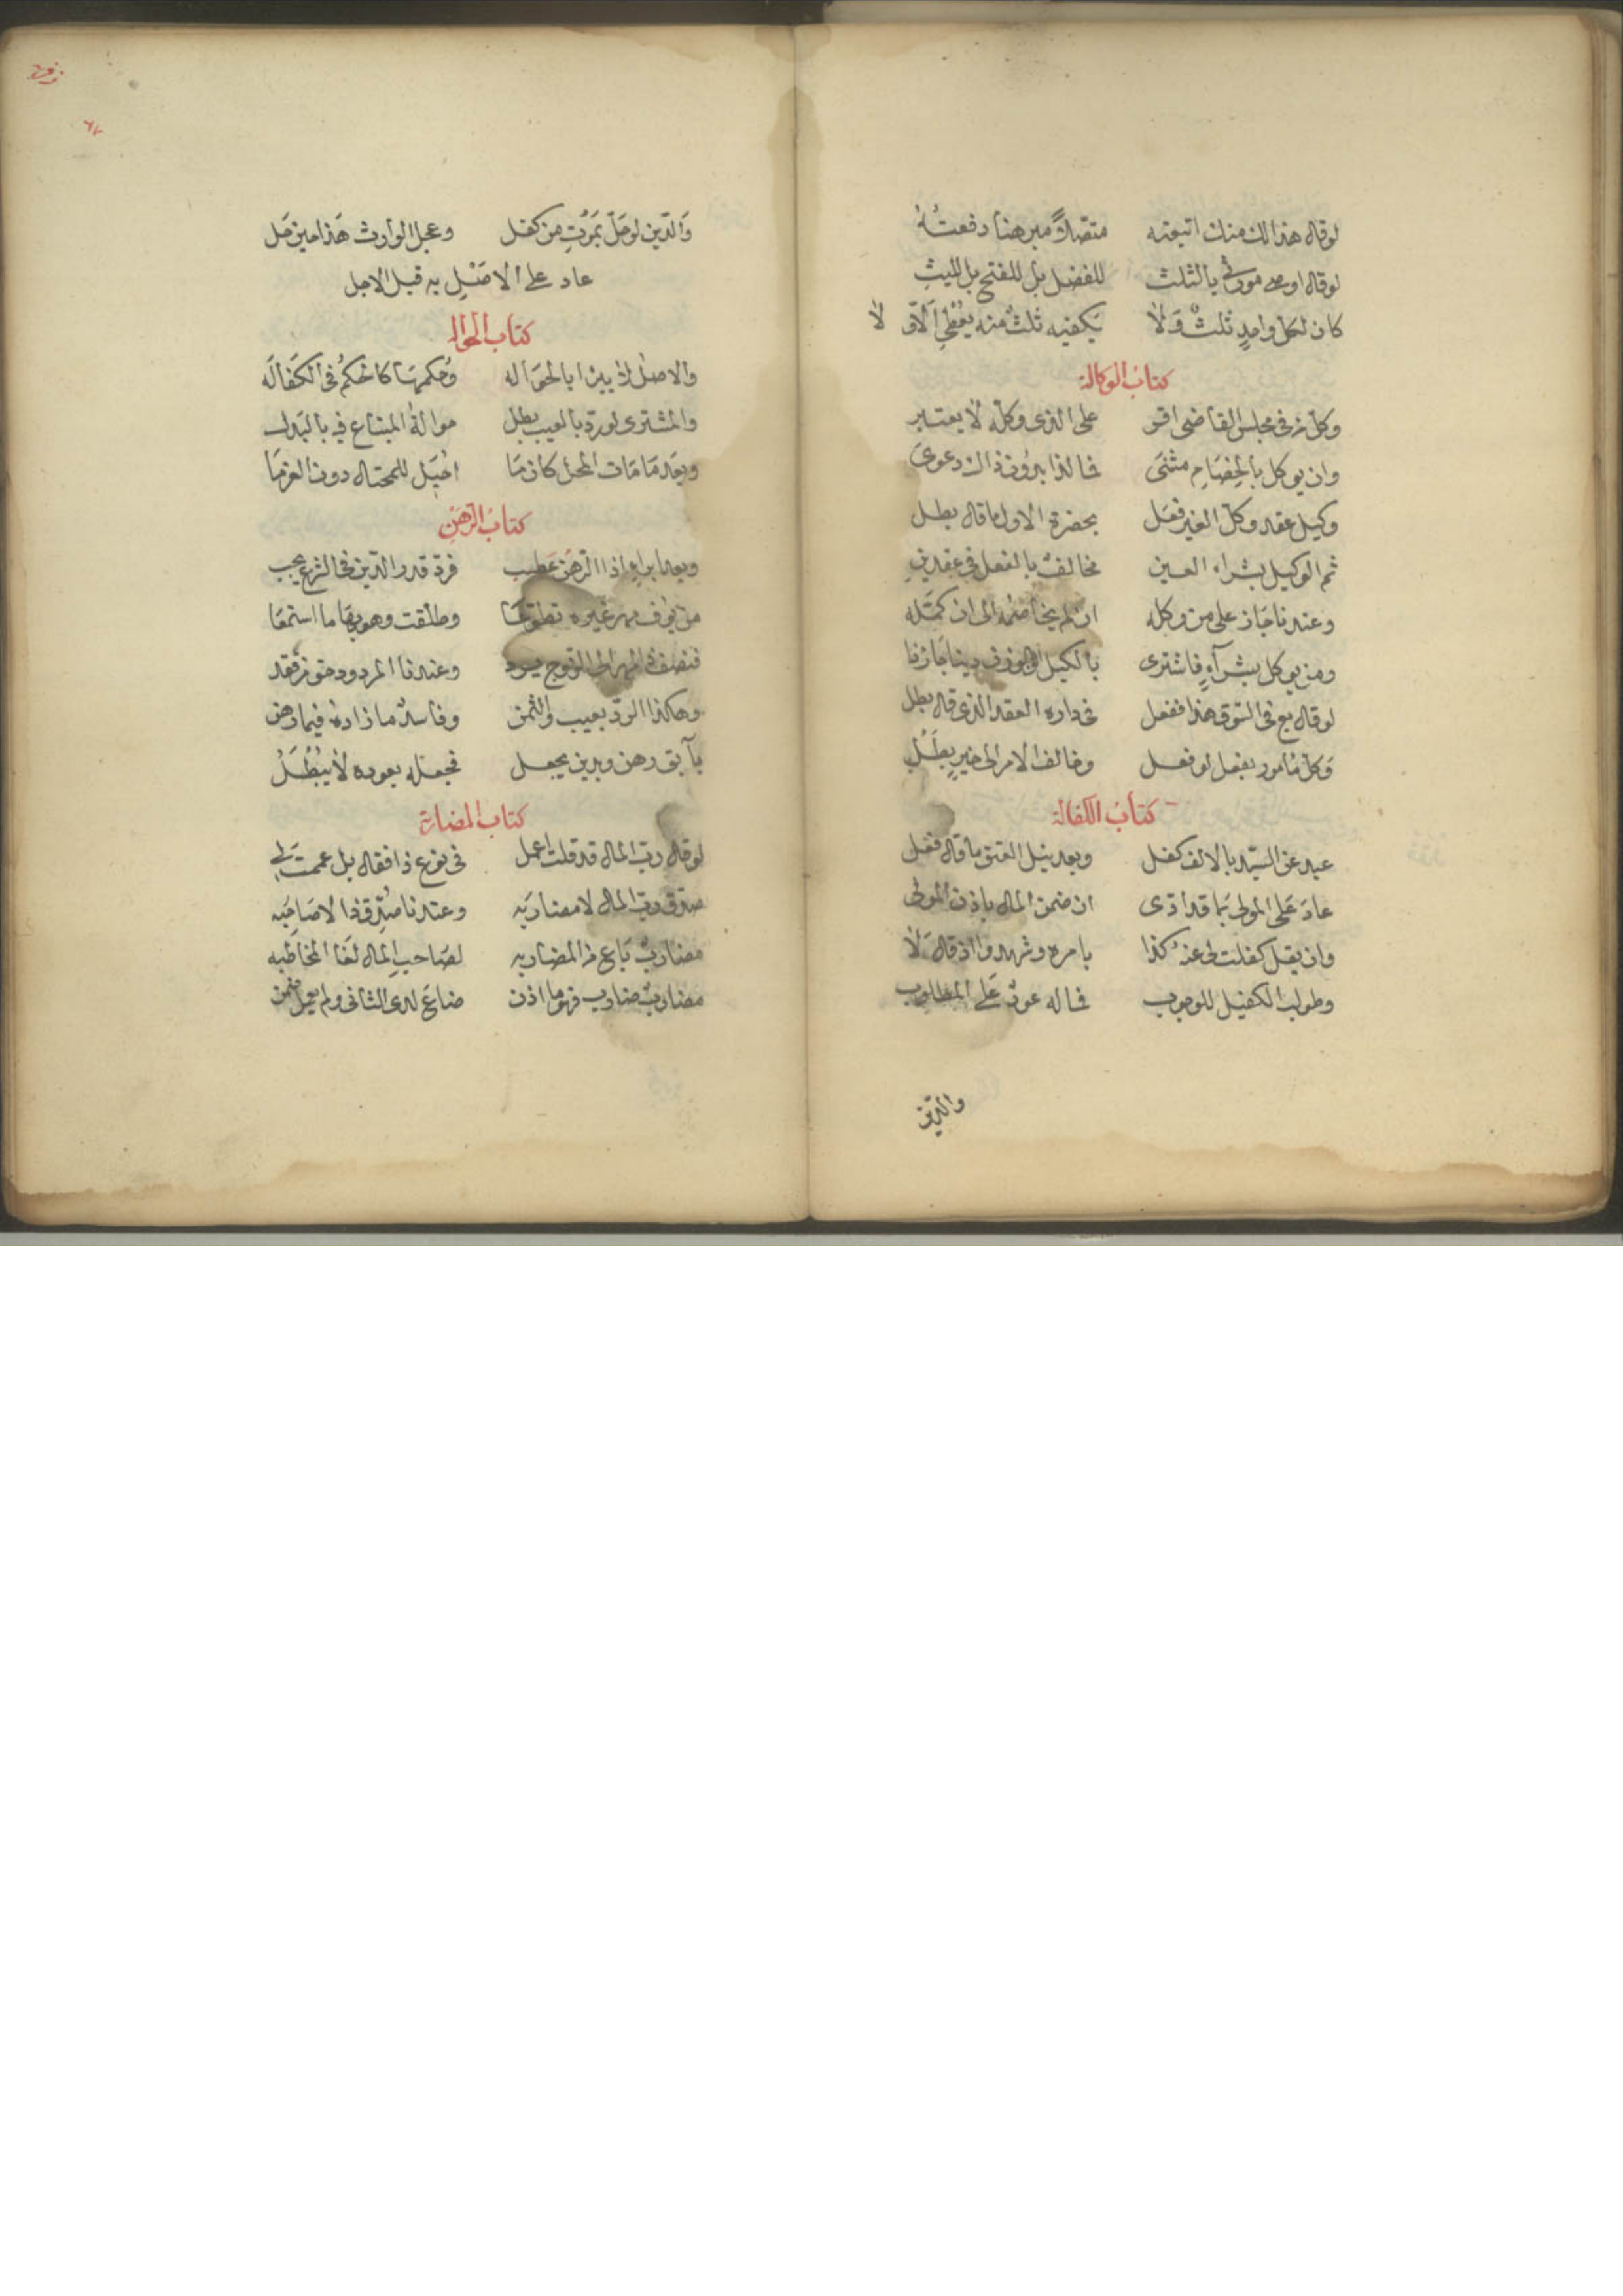 لو قال هذا لك منك ابتعته متصلا مبرهنا دفعته
لو قال اوصى مورثي بالثلث للفضل بل للفتح بل لليث
كان لكل واحد ثلث ولا يكفيه ثلث منه يعطي الاولا
كتاب الوكالة
وكل من في مجلس القاضي اقر على الذي وكله لا يعتبر
وان يوكل بالخصام مثنى فالفذ بدون ذاك دعوى
وكيل عقد وكل الغير فعل بحضرة الاول ما قال بطل
ثم الوكيل بشراء العين مخالف بالفعل في عقدين
وعندنا جاز على من وكله ان لم يخاصمه الى ان كمله
ومن يوكل بشراء فاشترى بالكيل او موزون دينا جاز ذا
لو قال بع في السوق هذا ففعل في داره العقد الذي قال بطل
وكل مامور بفعل لو فعل وخالف الامر الى خير بطل
كتاب الكفالة
عبد عن السيد بالالف كفل وبعد نيل العتق ما قال فعل
عاد على المولى بما قد ادى ان ضمن المال باذن المولى
وان يقل كفلت لي عنه كذا بامره وشهدوا اذ قال لا
وطولب الكفيل للوجوب فماله عود على المطلوب
والدين
والدين لو حل بموت من كفل وعجل الوارث هذا حين حل
عاد على الاصيل به قبل الاجل
كتاب الحواله
والاصل لا يبرا بالحواله وحكمها كالحكم في الكفاله
والمشتري لو رد بالعيب بطل حوالة المبتاع فيه بالبدل
وبعد ما مات المحيل كان ما احيل للمحتال دون الغرما
كتاب الرهن
وبعد ابراء اذا الرهن عطب فرد قدر الدين في الشرع يجب
من يوف مهر غيره تطوعا وطلقت وهو بها ما استمتعا
فنصف ذا المهر الى الزوج يرد وعندنا المردود حق من نقد
وهكذا الرد بعيب والثمن وفاسد ما زاده فيما رهن
بآبق رهن وبدين يجعل فجعله بعوده لا يبطل
كتاب المضاربة
لو قال رب المال قد قلت اعمل في نوع ذا فقال بل عممت لي
صدق رب المال لا مضاربه وعندنا صدق ذا لا صاحبه
مضارب باع من المضاربه لصاحب المال لغا المخاطبه
مضارب ضارب فهو ما اذن ضاع لدى الثاني ولم يعمل ضمن